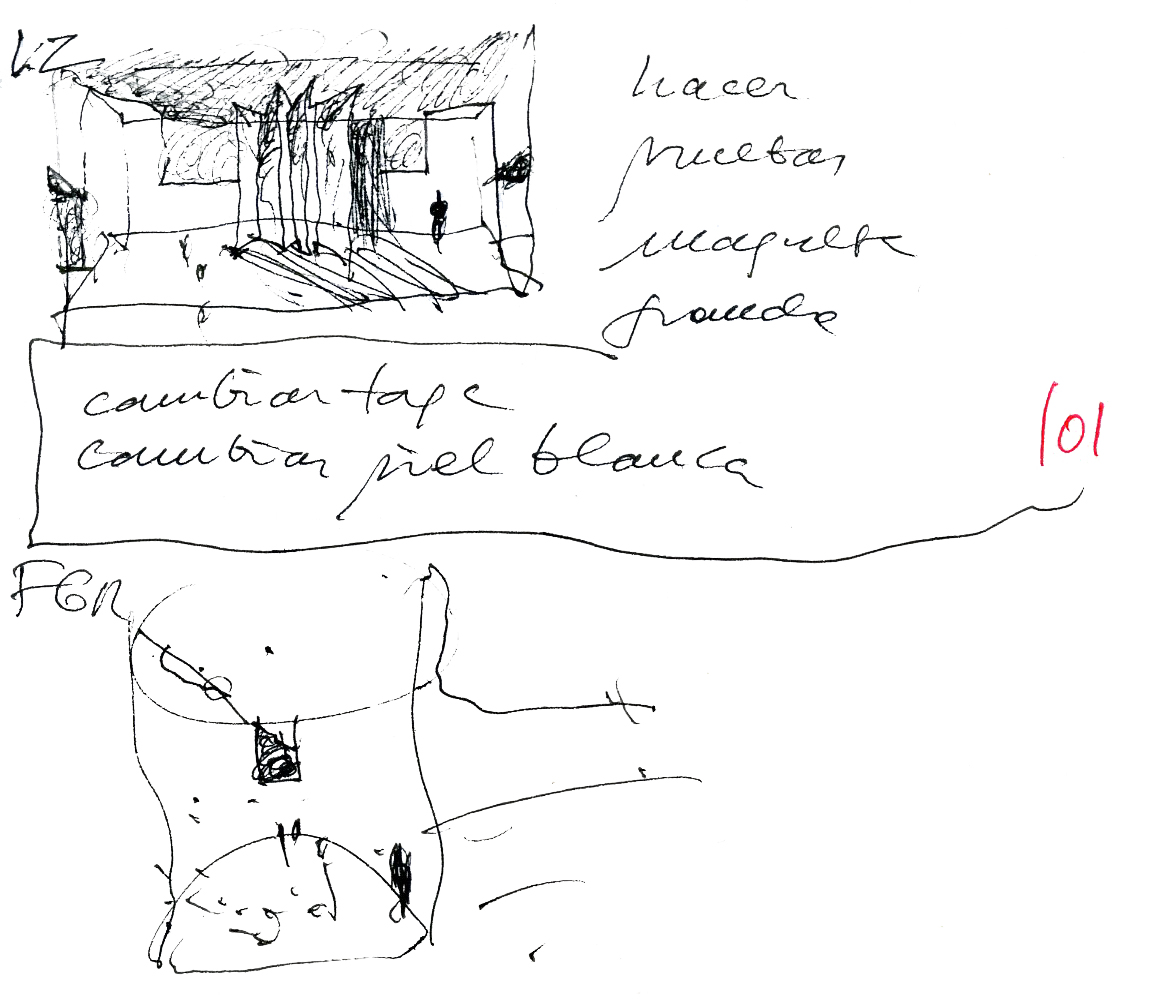 VZ
hacer
pruebas
maqueta
grande
cambiar tapa
cambiar piel blanca
101
FGR